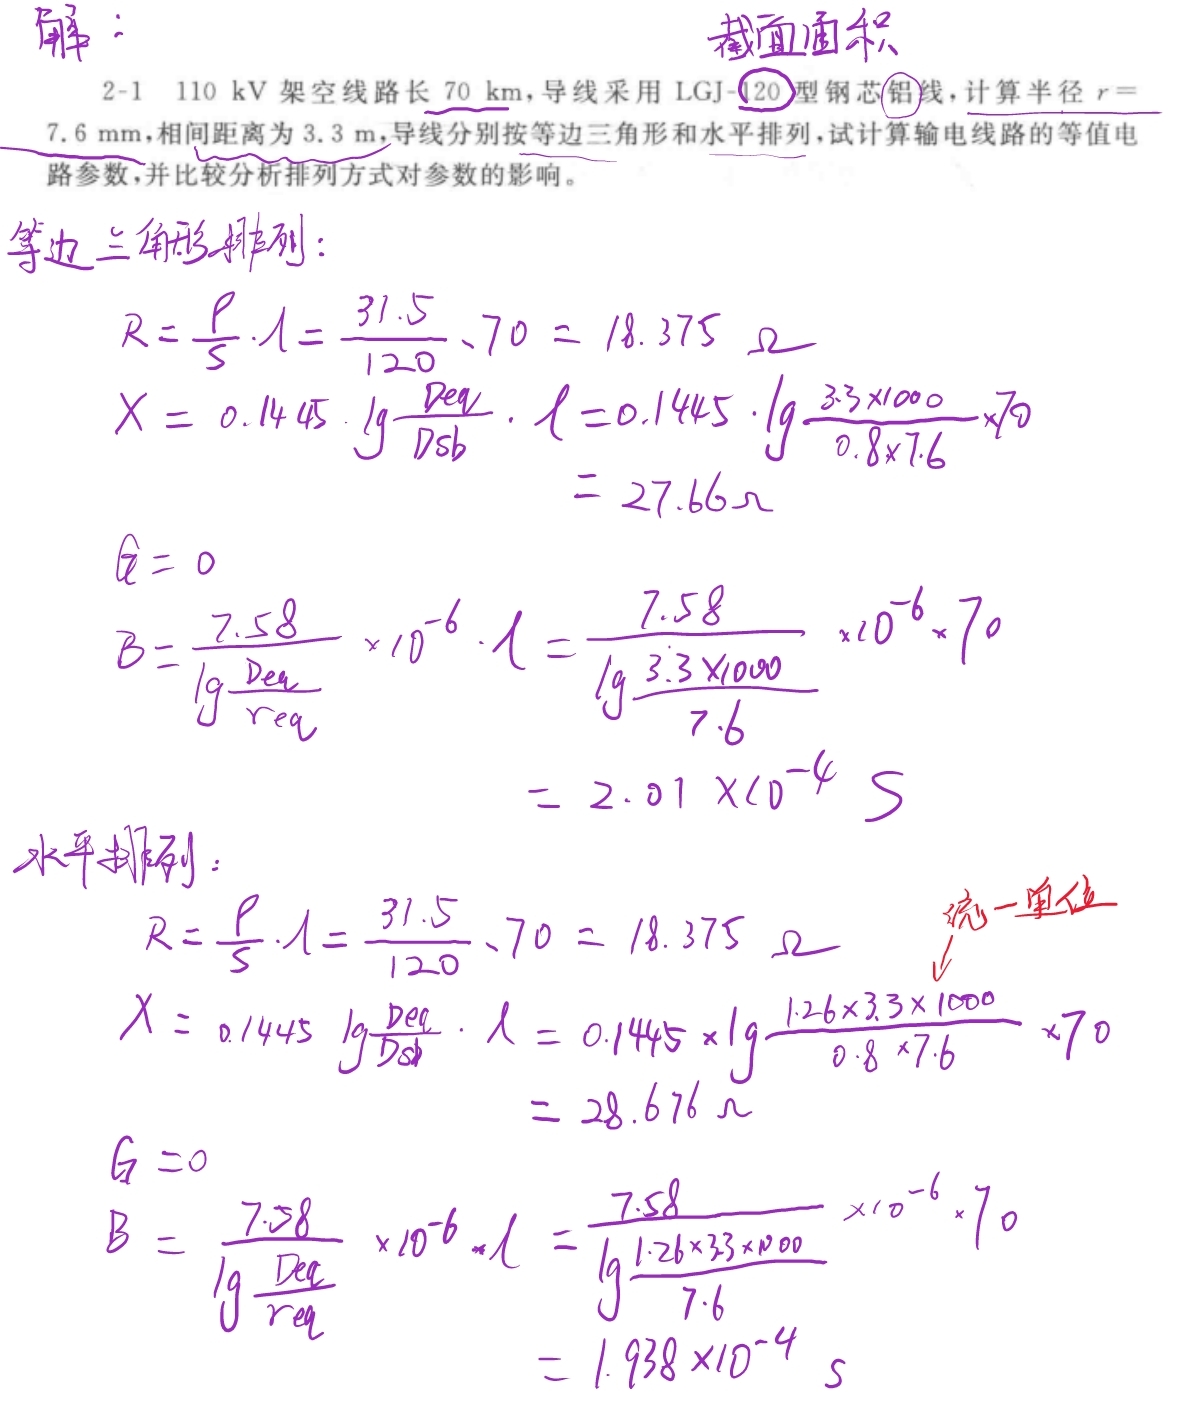 解：
截面面积
2-1 110 kV 架空线路长 70 km,导线采用 LGJ-120 型钢芯铝线,计算半径 r=
7.6 mm,相间距离为 3.3 m,导线分别按等边三角形和水平排列,试计算输电线路的等值电
路参数,并比较分析排列方式对参数的影响。
等边三角形排列：
R = ρ/S · l = 31.5/120 · 70 = 18.375 Ω
X = 0.1445 · lg Deq/Dsb · l = 0.1445 · lg 3.3×1000/0.8×7.6 ×70
= 27.66Ω
G = 0
B = 7.58/lg Deq/req ×10⁻⁶ · l = 7.58/lg 3.3×1000/7.6 ×10⁻⁶ × 70
= 2.01 ×10⁻⁴ S
水平排列：
R = ρ/S · l = 31.5/120 · 70 = 18.375 Ω
统一单位
X = 0.1445 lg Deq/Dsb · l = 0.1445 × lg 1.26×3.3×1000/0.8×7.6 ×70
= 28.676 Ω
G = 0
B = 7.58/lg Deq/req ×10⁻⁶ · l = 7.58/lg 1.26×3.3×1000/7.6 ×10⁻⁶ × 70
= 1.938 ×10⁻⁴ S